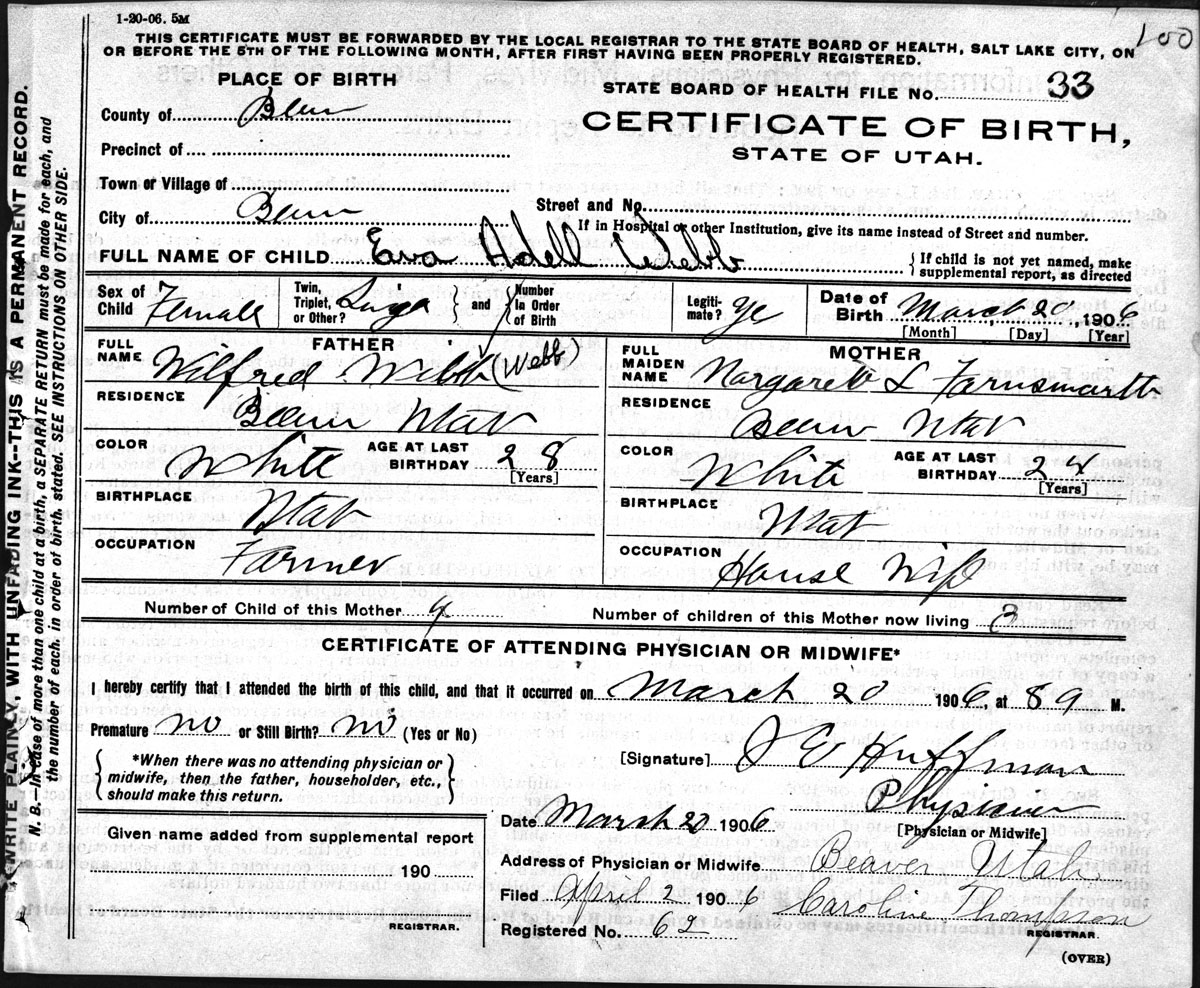 1-20-06. 5M
100
THIS CERTIFICATE MUST BE FORWARDED BY THE LOCAL REGISTRAR TO THE STATE BOARD OF HEALTH, SALT LAKE CITY, ON
OR BEFORE THE 5TH OF THE FOLLOWING MONTH, AFTER FIRST HAVING BEEN PROPERLY REGISTERED.
PLACE OF BIRTH
STATE BOARD OF HEALTH FILE No. 33
County of
CERTIFICATE OF BIRTH,
Precinct of
STATE OF UTAH.
Town or Village of
Street and No.
City of
If in Hospital or other Institution, give its name instead of Street and number.
FULL NAME OF CHILD Eva Adell Webb { If child is not yet named, make
supplemental report, as directed
Sex of Child Female Twin, Triplet, or Other? } and { Number In Order of Birth Legiti-mate? Date of Birth March 20, 1906
[Month] [Day] [Year]
FATHER
FULL NAME Wilfred Webb (Webb)
RESIDENCE Utah
COLOR White AGE AT LAST BIRTHDAY 28 [Years]
BIRTHPLACE Utah
OCCUPATION Farmer
MOTHER
FULL MAIDEN NAME L Farnsworth
RESIDENCE Utah
COLOR White AGE AT LAST BIRTHDAY 24 [Years]
BIRTHPLACE Utah
OCCUPATION House Wife
Number of Child of this Mother 4 Number of children of this Mother now living 3
CERTIFICATE OF ATTENDING PHYSICIAN OR MIDWIFE*
I hereby certify that I attended the birth of this child, and that it occurred on March 20 1906, at M.
Premature no or Still Birth? no (Yes or No)
{ *When there was no attending physician or
midwife, then the father, householder, etc.,
should make this return. }
[Signature] J E Huffman
Physician
[Physician or Midwife]
Date March 20 1906
Given name added from supplemental report
190
REGISTRAR.
Address of Physician or Midwife Beaver Utah
Filed April 2 1906 Caroline Thompson
REGISTRAR.
Registered No. 62
(OVER)
WRITE PLAINLY, WITH UNFADING INK--THIS IS A PERMANENT RECORD.
N. B.--In case of more than one child at a birth, a SEPARATE RETURN must be made for each, and
the number of each, in order of birth, stated. SEE INSTRUCTIONS ON OTHER SIDE.